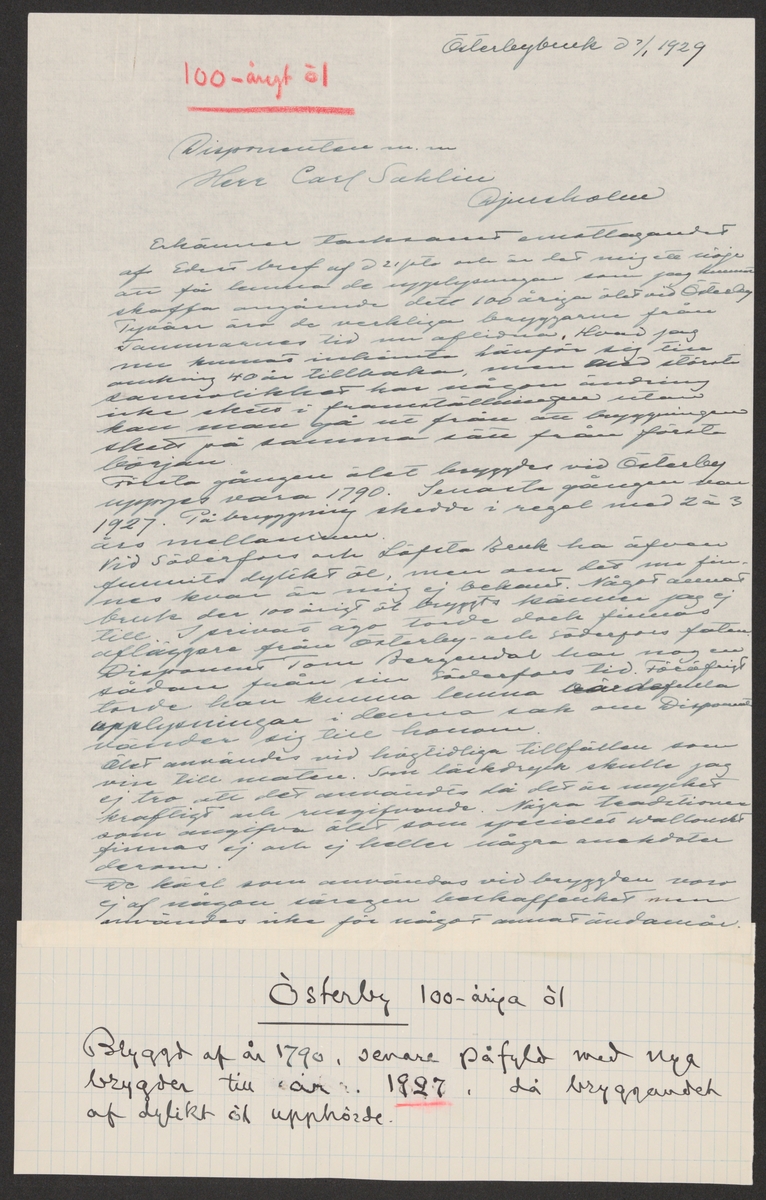 Österbybruk d 7/1 1929
100-årigt öl
Disponenten m. m
Herr Carl Sahlin
Djursholm
Erkänner tacksamt emottagandet
af Edert bref af d 21/ och är det mig ett nöje
att få lemna de upplysningar som jag kunnat
skaffa angående dett 100 åriga ölet vid Österby
Tyvärr äro de verkliga bryggarne från
Tammarnes tid nu aflidna. Hvad jag
nu kunnat inhämta hänför sig till
omkring 40 år tillbaka, men med största
sannolikhet har någon ändring
icke skets i framställningen utan
kan man gå ut från att bryggningen
skets på samma sätt från första
början.
Första gången ölet bryggdes vid Österby
uppges vara 1790. Senaste gången var
1927. Påbryggning skedde i regel med 2 à 3
års mellanrum.
Vid Söderfors och Löfsta Bruk ha äfven
funnits dylikt öl, men om det nu fin-
nes kvar är mig ej bekant. Något annat
bruk der 100 årigt öl bryggts känner jag ej
till. I privat ägo torde dock finnas
afläggare från Österby- och Söderfors faten.
Disponent Tom Bergendal har nog en
sådan från sin Söderfors tid. Föröfrigt
torde han kunna lemna värdefulla
upplysningar i denna sak om Disponenten
vänder sig till honom.
Ölet användes vid högtidliga tillfällen som
vin till maten. Som läskdryck skulle jag
ej tro att det användes då det är mycket
kraftigt och rusgifvande. Några traditioner
som angifva ölet som specielt wallonskt
finnas ej och ej heller några anekdoter
derom.
De kärl som användes vid brygden voro
ej af någon säregen beskaffenhet men
användes icke för något annat ändamål.
Österby 100-åriga öl
Bryggd af år 1790, senare påfyld med nya
brygder till år 1927, då bryggandet
af dylikt öl upphörde.